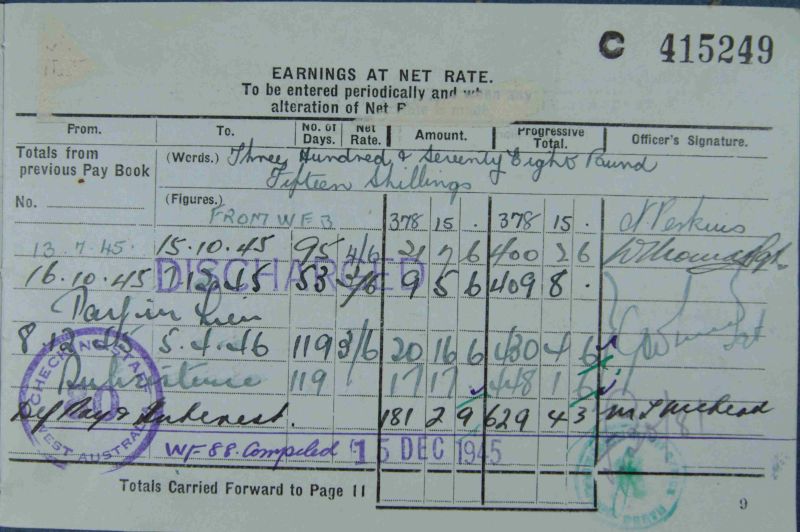 C 415249
EARNINGS AT NET RATE.
To be entered periodically and
alteration of Net
From. To. No. of Days. Net Rate. Amount. Progressive Total. Officer's Signature.
Totals from previous Pay Book (Words.) Three Hundred & Seventy Eight Pound
Fifteen Shillings
No. (Figures.)
FROM WF 3 378 15 . 378 15 . Perkins
13.7.45. 15.10.45 95 4/6 21 7 6 400 2 6
16.10.45 7.12.45 53 3/6 9 5 6 409 8 .
DISCHARGED
Pay in Lieu
8.12.45 5.4.46 119 3/6 20 16 6 430 4 6
Subsistence 119 17 17 . 448 1 6
Def Pay & Interest. 181 2 9 629 4 3
CHECKING STAFF
WEST AUSTRALIA
WF 88. Compiled 15 DEC 1945
Totals Carried Forward to Page 11
9